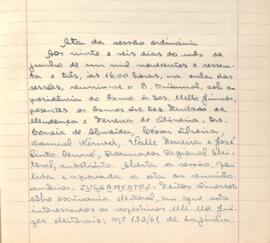 Ata da sessão ordinária
Aos vinte e seis dias do mês de
junho de um mil novecentos e sessen-
ta e três, às 16,00 horas, na sala das
sessões, reuniu-se o E. Tribunal, sob a
presidência do Exmo. Sr. Des. Mello Júnior,
presentes os Exmos. Srs. Des. Furtado de
Mendonça e Ferreira de Oliveira, Drs.
Corrêa de Almeida, César Silveira,
Samuel Werneck, Valle Ferreira e José
Pinto Renó, Procurador Regional Elei-
toral, substituto. Aberta a sessão, foi
lida e aprovada a ata da reunião
anterior. JULGAMENTOS. Feitos Diversos
sôbre escrivania eleitoral, em que são
interessados os respectivos MM. Juí-
zes eleitorais: nº 132/61 de Lajinha.